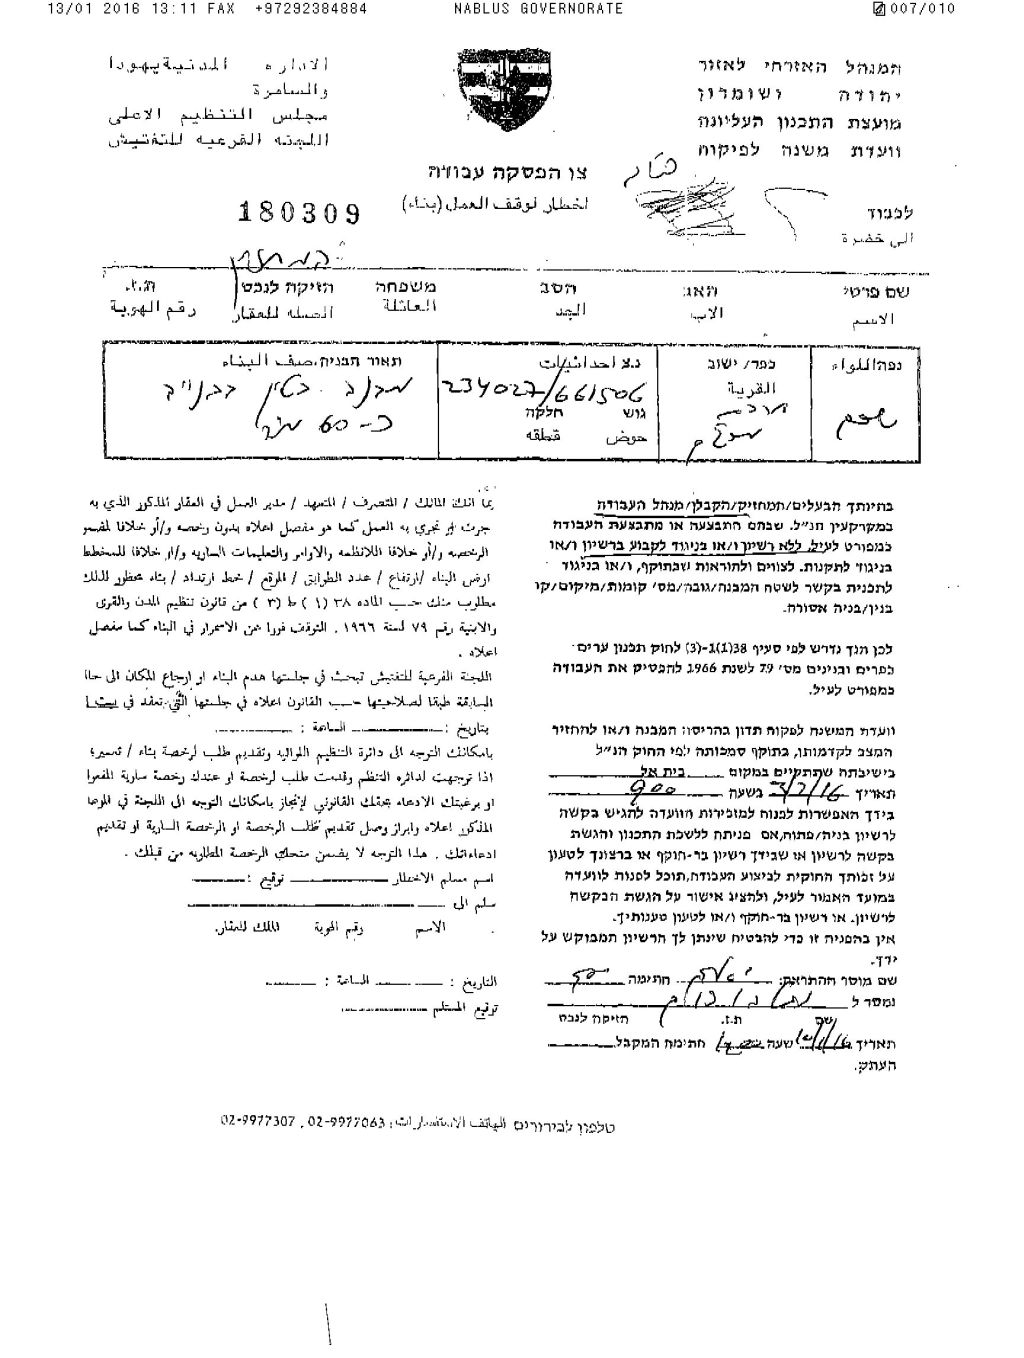 13/01 2016 13:11 FAX +97292384884 NABLUS GOVERNORATE 007/010
המנהל האזרחי לאזור
יהודה ושומרון
מועצת התכנון העליונה
וועדת משנה לפיקוח
الاداره المدنية يهودا
والسامرة
مجلس التنظيم الاعلى
اللجنه الفرعيه للتفتيش
צו הפסקה עבודה
اخطار لوقف العمل (بناء)
180309
לכבוד
الى حضرة
שם פרטי האב הסב משפחה הזיקה לנכס ת.ז.
الاسم الاب الجد العائلة الصله للعقار رقم الهوية
נפה/اللواء
שכם
כפר/ ישוב
القرية
נ.צ احداثيات
234027/661506
גוש חלקה
حوض قطقه
תאור הבניה، صف البناء
מבנה בטון בבנייה
כ-60 מ"ר
בהיותך הבעלים/המחזיק/הקבלן/מנהל העבודה
במקרקעין הנ"ל. שבהם התבצעה או מתבצעת העבודה
כמפורט לעיל, ללא רשיון ו/או בניגוד לקבוע ברשיון ו/או
בניגוד לתקנות. לצווים ולהוראות שבתוקף, ו/או בניגוד
לתכנית בקשר לשטח המבנה/גובה/מס' קומות/מיקום/קו
בנין/בניה אסורה.
לכן הנך נדרש לפי סעיף 38(1)-(3) לחוק תכנון ערים
כפרים ובנינים מס' 79 לשנת 1966 להפסיק את העבודה
כמפורט לעיל.
וועדת המשנה לפקוח תדון בהריסת המבנה ו/או להחזיר
המצב לקדמותו, בתוקף סמכותה לפי החוק הנ"ל
בישיבתה שתתקיים במקום בית אל
תאריך 3/2/16 בשעה 900
בידך האפשרות לפנות למזכירות הוועדה להגיש בקשה
לרשיון בניה/פתוח, אם פניתה ללשכת התכנון והגשת
בקשה לרשיון או שבידך רשיון בר-תוקף או ברצונך לטעון
על זכותך החוקית לביצוע העבודה, תוכל לפנות לוועדה
במועד האמור לעיל, ולהציג אישור על הגשת הבקשה
לרשיון. או רשיון בר-תוקף ו/או לטעון טענותיך.
אין בהפניה זו כדי להבטיח שינתן לך הרשיון המבוקש על
ידך.
שם מוסר ההתראה: חתימה
נמסר ל
שם ת.ז. הזיקה לנכס
תאריך שעה חתימה המקבל
העתק.
بما انك المالك / المتصرف / المتعهد / مدير العمل في العقار المذكور الذي به
جرت او تجري به العمل كما هو مفصل اعلاه بدون رخصه و/أو خلافا لمفهمو
الرخصه و/أو خلافا للانظمه والاوامر والتعليمات الساريه و/او خلافا للمخطط
ارض البناء /ارتفاع / عدد الطوابق / الموقع / خط ارتداد / بناء محظور لذلك
مطلوب منك حسب الماده ٣٨ (١) ط (٣) من قانون تنظيم المدن والقرى
والابنية رقم ٧٩ لسنة ١٩٦٦، التوقف فورا عن الاستمرار في البناء كما مفصل
اعلاه .
اللجنة الفرعية للتفتيش تبحث في جلستها هدم البناء او إرجاع المكان الى حالته
السابقة طبقا لصلاحيتها حسب القانون اعلاه في جلستها التي تعقد في
بتاريخ : الساعة :
بامكانك التوجه الى دائرة التنظيم اللوائيه وتقديم طلب لرخصة بناء / تعمير؛
اذا توجهت لدائره التنظم وقدمت طلب لرخصة او عندك رخصة سارية المفعول
او برغبتك الادعاء بحقك القانوني لإنجاز بامكانك التوجه الى اللجنة في الموعد
المذكور اعلاه وابراز وصل تقديم طلب الرخصة او الرخصة السارية او تقديم
ادعاءاتك . هذا التوجه لا يضمن منحك الرخصة المطلوبه من قبلك .
اسم مسلم الاخطار توقيع :
سلم الى
الاسم رقم الهوية المالك للعقار.
التاريخ : الساعة :
توقيع المستلم
טלפון לבירורים الهاتف للاستفسارات: 02-9977063 , 02-9977307